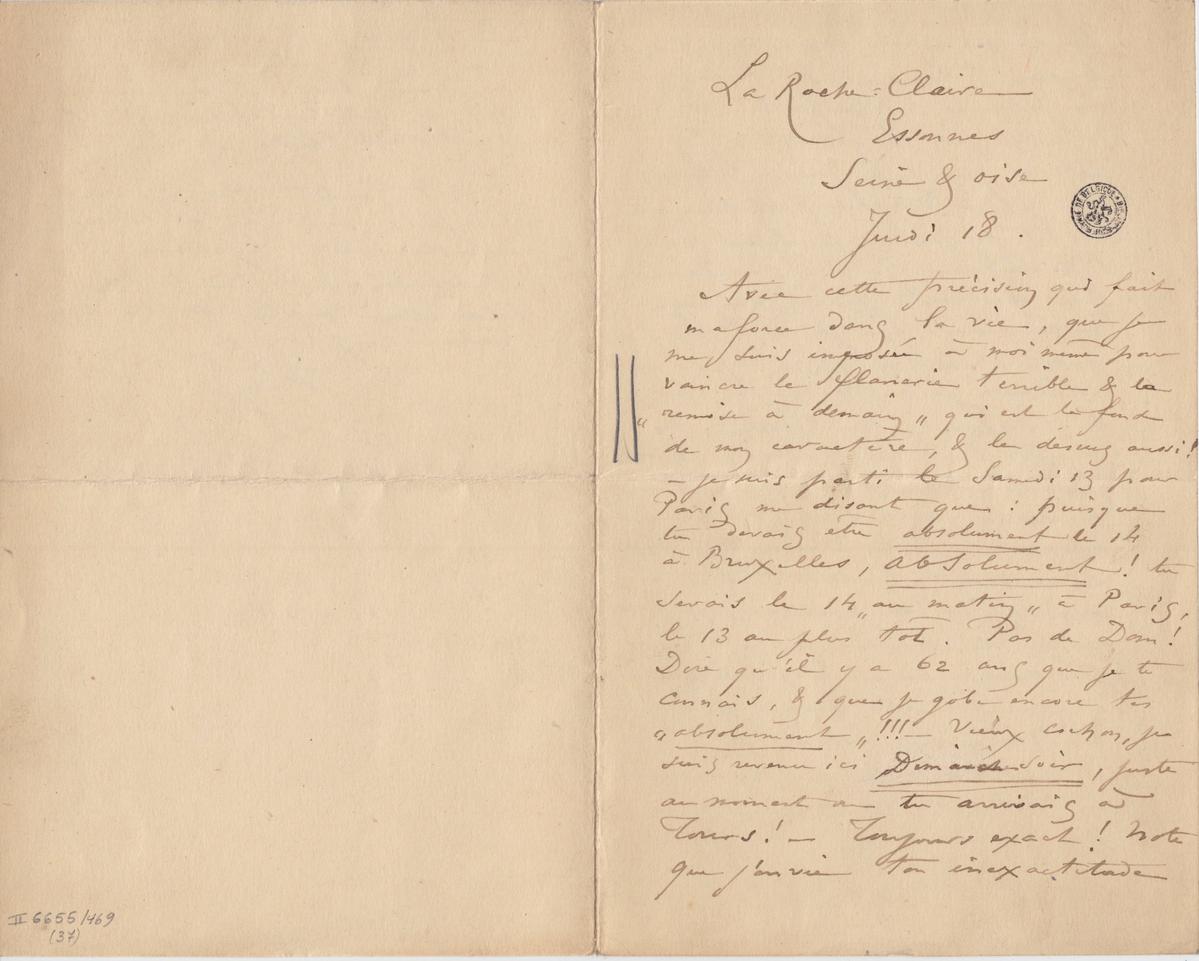 La Roche-Claire
Essonnes
Seine & oise
Jeudi 18.
Avec cette précision qui fait
ma force dans la vie, que je
me suis imposée à moi même pour
vaincre la flanerie terrible & la
"remise à demain" qui est le fond
de mon caractère, & le dessus aussi!
– je suis parti le Samedi 13 pour
Paris me disant que : puisque
tu devais etre absolument le 14
à Bruxelles, absolument! tu
serais le 14 "au matin" à Paris,
le 13 au plus tôt. Pas de Dom!
Dire qu'il y a 62 ans que je te
connais, & que je gobe encore tes
"absolument"!!! – Vieux cochon, je
suis revenu ici Dimanche soir, juste
au moment ou tu arrivais à
Tours! – Toujours exact! Note
que j'envie ton inexactitude
II 6655/469
(37)